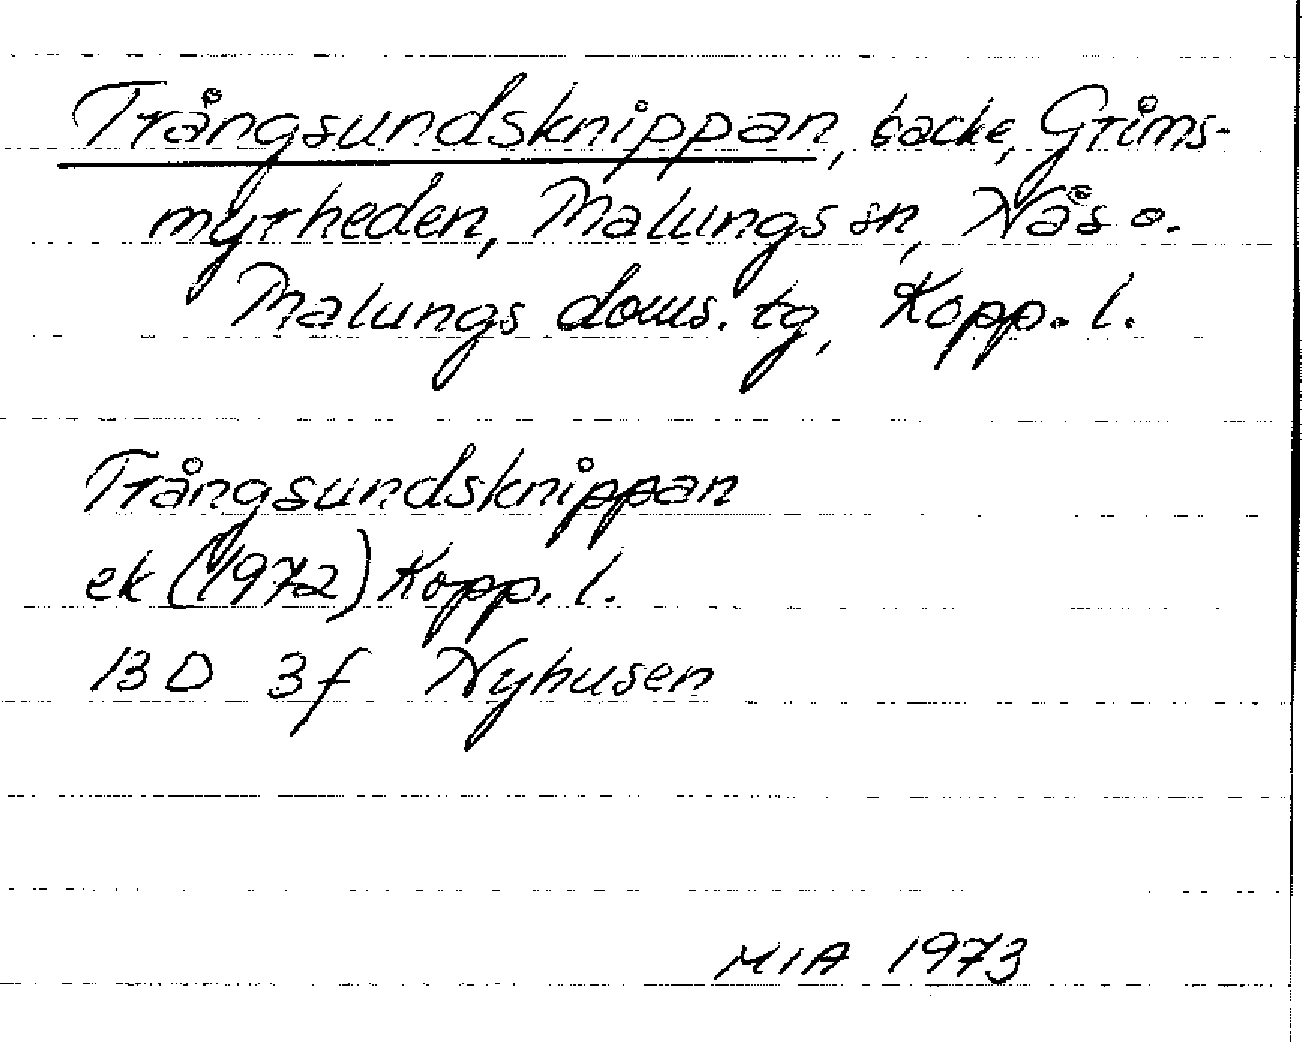 Trångsundsknippan, backe, Grims-
myrheden, Malungs sn, Nås o.
Malungs doms. tg, Kopp. l.
Trångsundsknippan
ek (1972) Kopp. l.
13 D 3f Nyhusen
MIA 1973